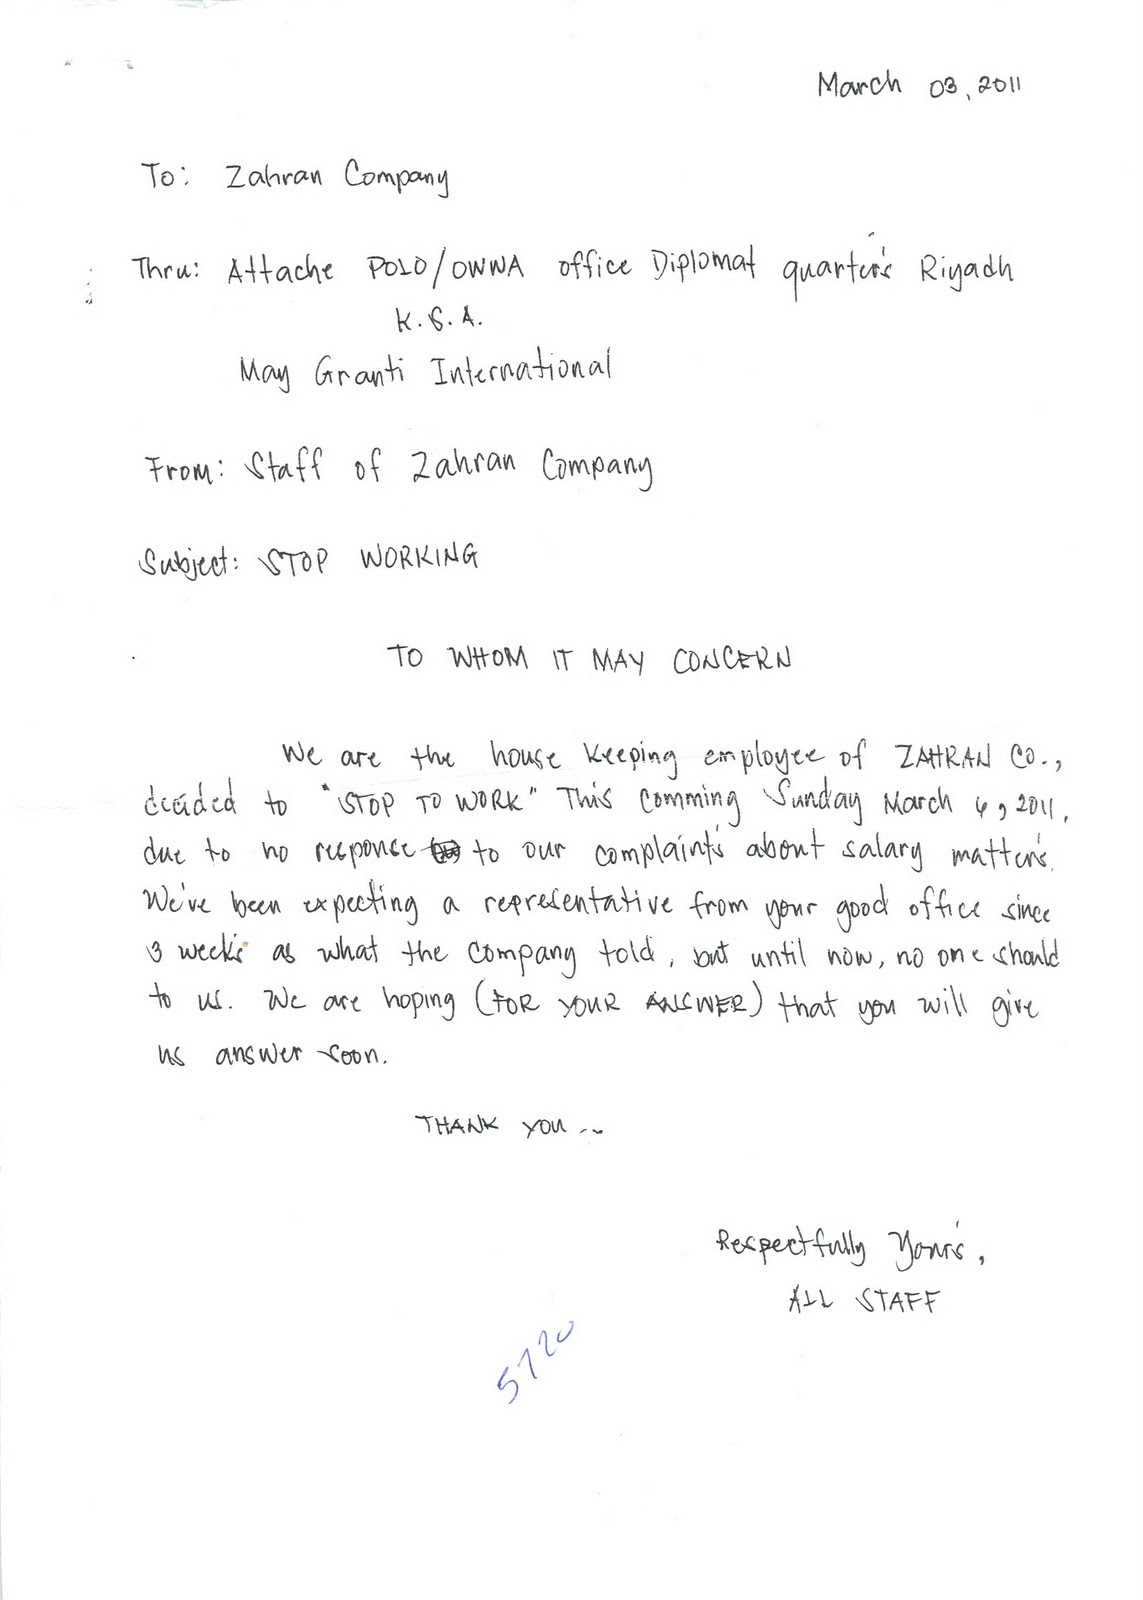 March 03, 2011
To: Zahran Company
Thru: Attache POLO/OWWA office Diplomat quarter's Riyadh
K.S.A.
May Granti International
From: Staff of Zahran Company
Subject: STOP WORKING
TO WHOM IT MAY CONCERN
We are the house keeping employee of ZAHRAN CO.,
decided to "STOP TO WORK" This comming Sunday March 6, 2011,
due to no response to our complaint's about salary matter's.
We've been expecting a representative from your good office since
3 week's as what the company told, but until now, no one should
to us. We are hoping (FOR YOUR ANSWER) that you will give
us answer soon.
THANK YOU...
Respectfully Your's,
ALL STAFF
5720